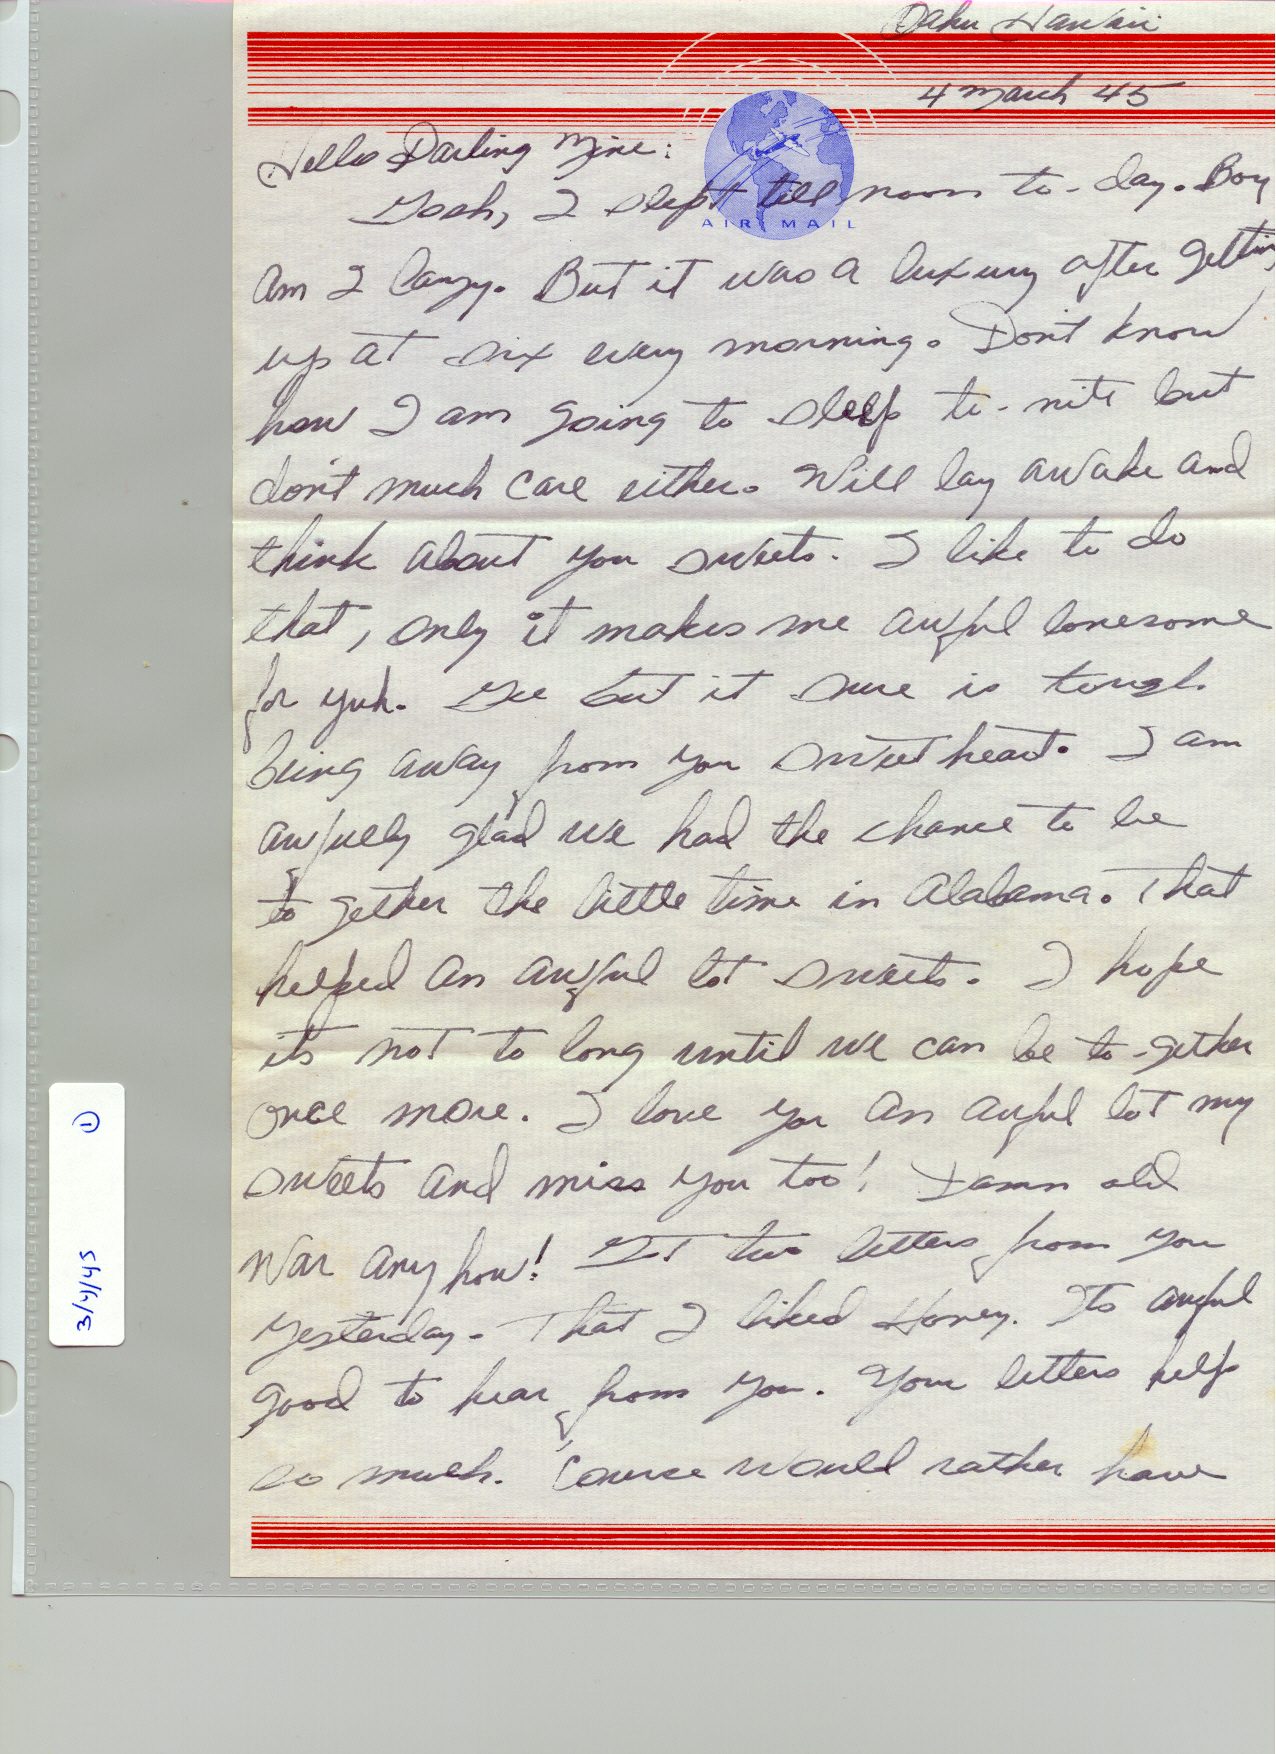 Oahu Hawaii
4 March 45
Hello Darling Mine:
Gosh, I slept till noon to-day. Boy
AIR MAIL
am I lazy. But it was a luxury after getting
up at six every morning. Don't know
how I am going to sleep to-nite but
don't much care either. Will lay awake and
think about you sweets. I like to do
that, only it makes me awful lonesome
for yuh. Gee but it sure is tough
being away from you sweetheart. I am
awfully glad we had the chance to be
to gether the little time in Alabama. That
helped an awful lot sweets. I hope
its not to long until we can be to-gether
once more. I love you an awful lot my
sweets and miss you too! Damn old
war any how! Got two letters from you
yesterday. That I liked Honey. Its awful
good to hear from you. Your letters help
so much. Course would rather have
3/4/45 1